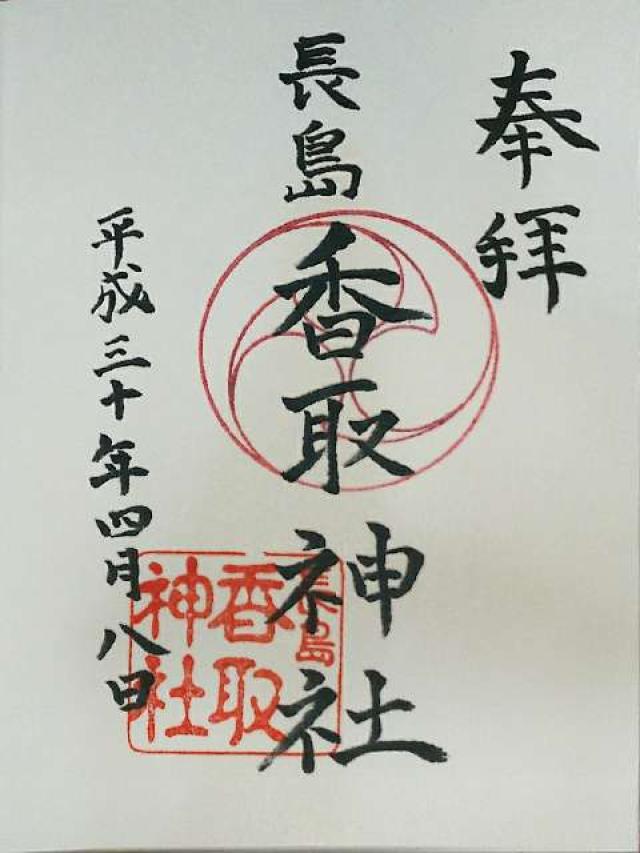 奉拝
長島香取神社
平成三十年四月八日
長島
香取
神社